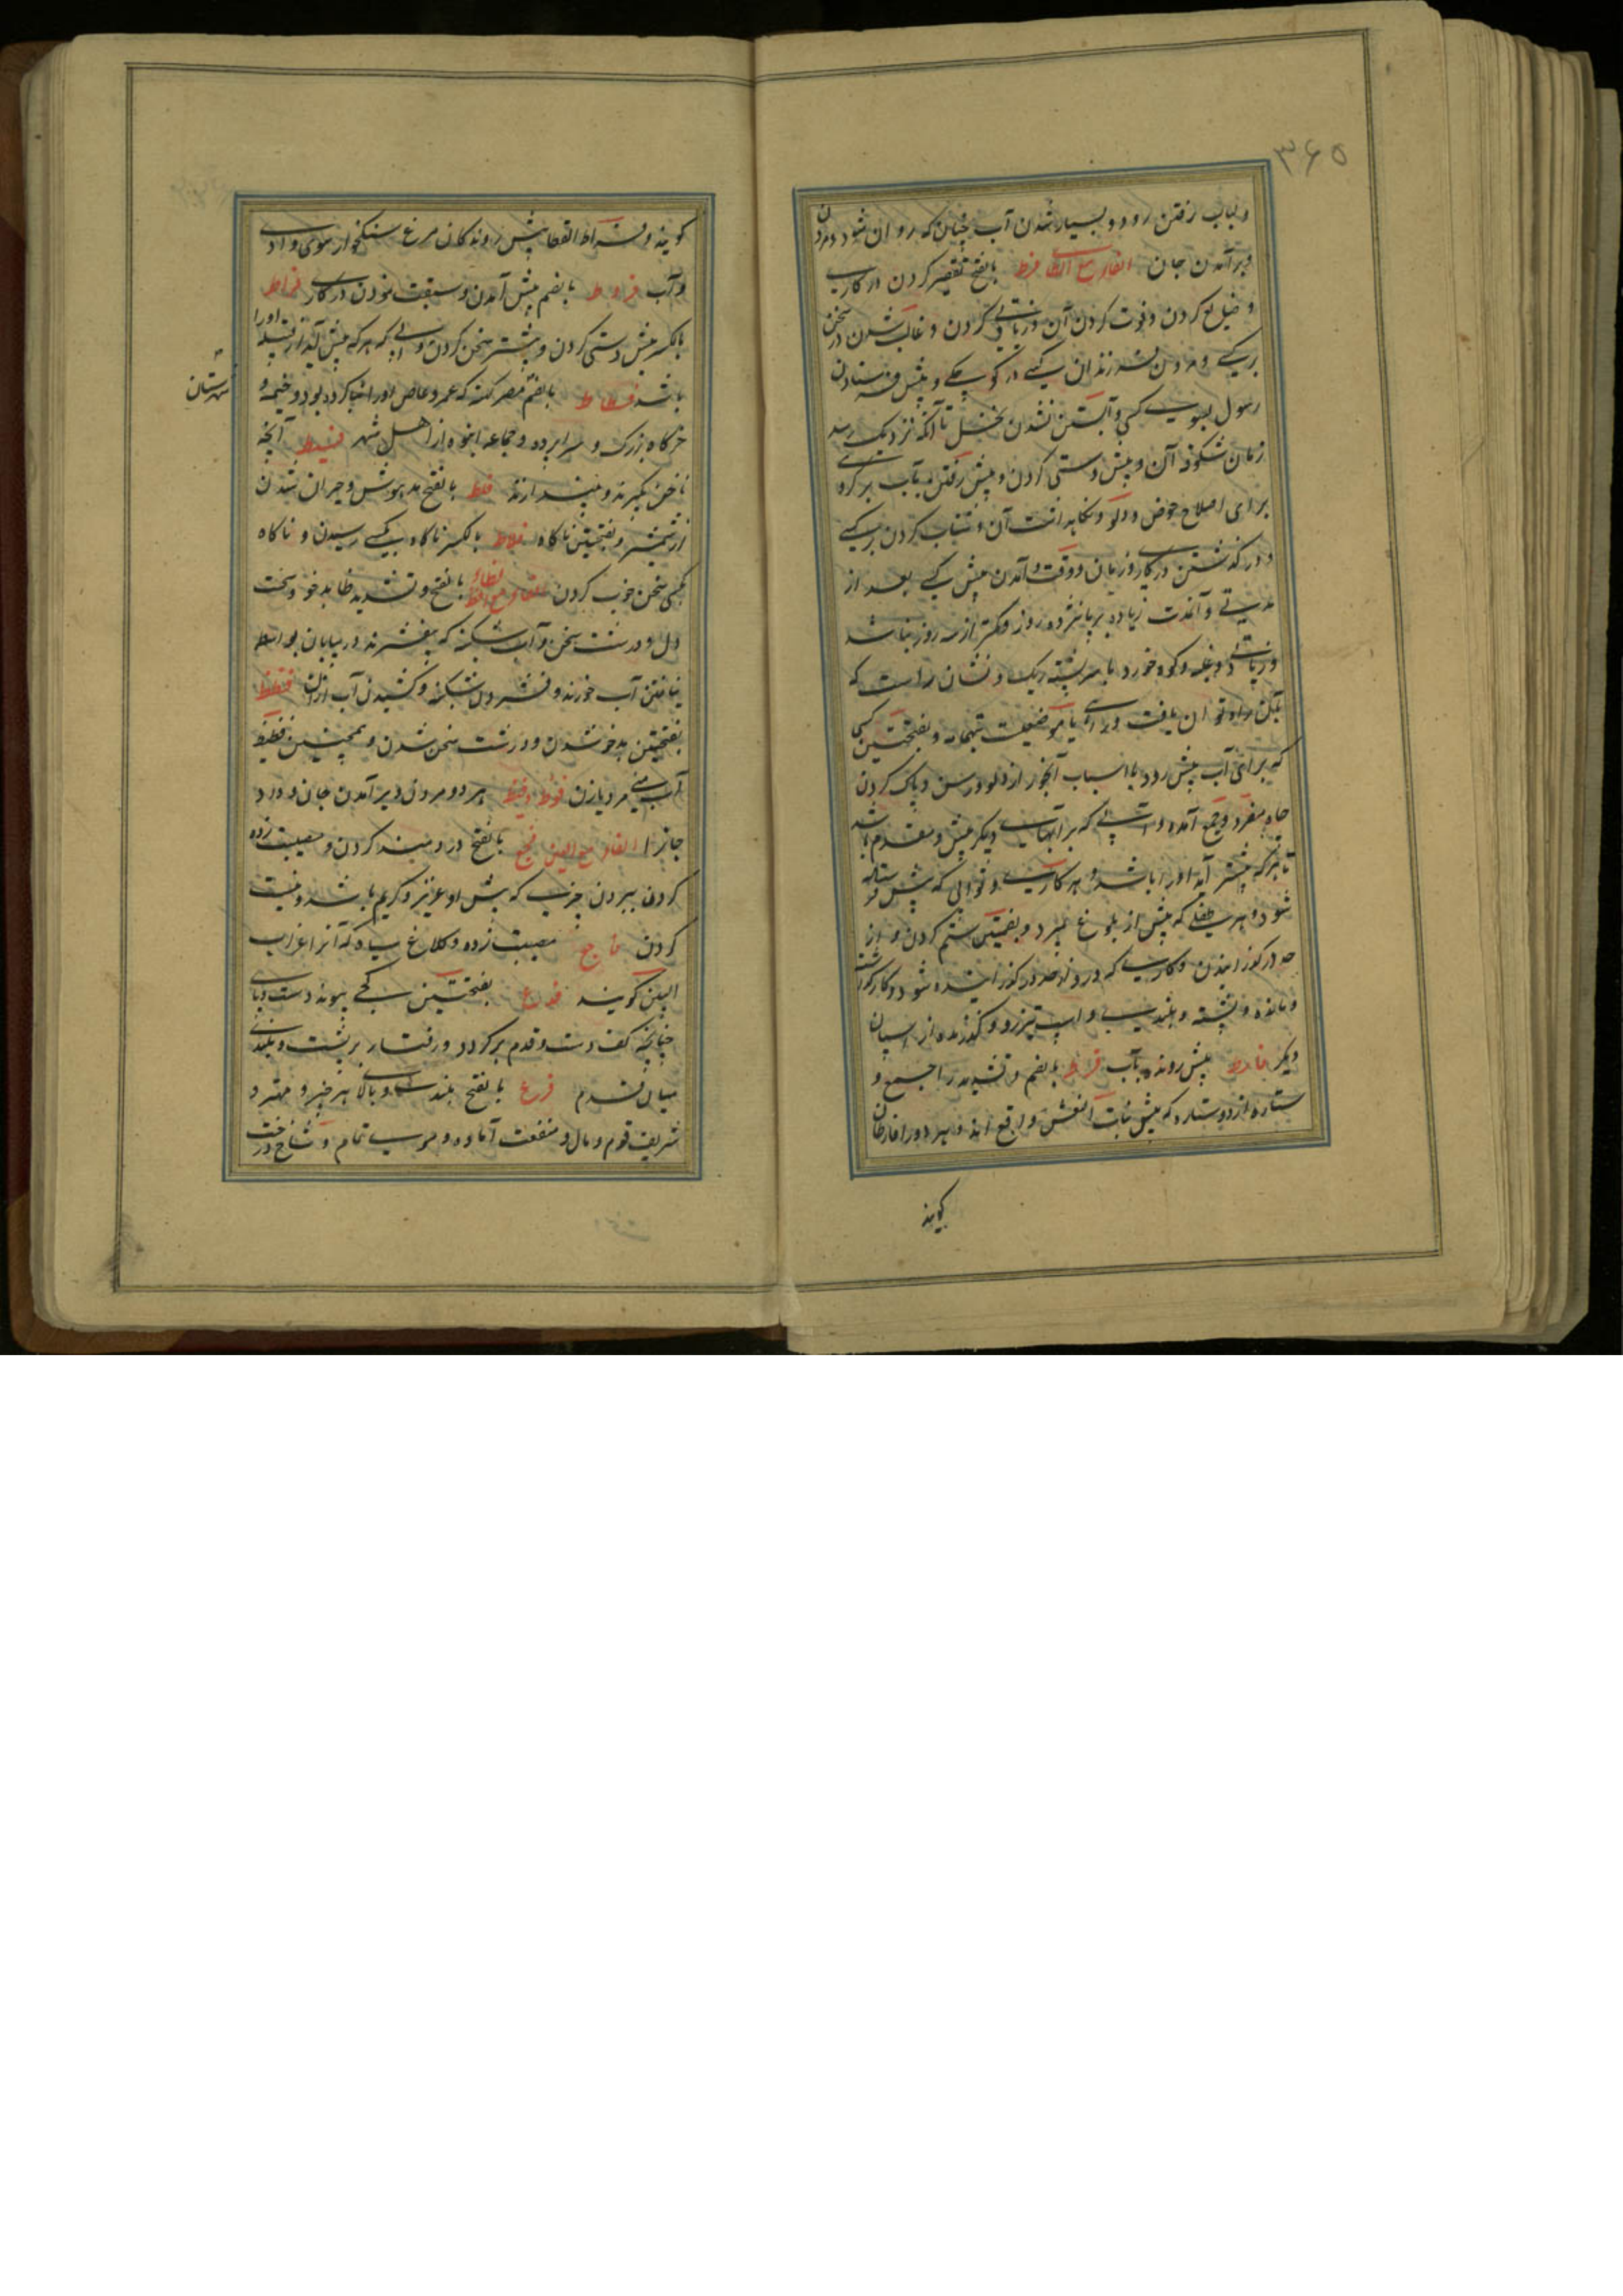 ۳۶۵
و لبالب رفتن رود و بسیار شدن آب چنان که روان شود و مردن
و برآمدن جان الفاء مع الطاء فرط بالفتح تقصیر کردن در کاری
و ضایع کردن و فوت کردن آن و زیادتی کردن و غالب شدن در سخن
بر کسی و مردن فرزندان کسی در کوچکی و پیش فرستادن
رسول بسوی کسی و آبستن نشدن نخل تا آنکه نزدیک رسد
زمان شکوفه آن و پیش دستی کردن و پیش رفتن بآب بر گروه
برای اصلاح حوض و دلو و نگاهداشت آن و شتاب کردن بر کسی
و در گذشتن در کار و زمان و وقت و آمدن پیش کسی بعد از
مدتی و آنمدت زیاده بر پانزده روز و کمتر از سه روز نباشد
و زیادتی و غلبه و کوه خورد یا سر پشته ریک و نشان راست که
بآن راه توان یافت و برای یا موضعیست بتهامه و بفتحتین کسی
که برای آب پیش رود با اسباب آبخور از دلو و رسن و پاک کردن
چاه مفرد و جمع آمده و آبی که بر آبهای دیگر پیش و مقدم باشد
تا هرکه پیشتر آید او را باشد و هر کاری و ثوابی که پیش فرستاده
شود و هر طفلی که پیش از بلوغ بمیرد و بضمتین ستم کردن و از
حد در گذرانیدن و کاری که در و از حد در گذرانیده شود و کار گذاشته
و مانده و پشته و بلندی و اسپ تیزرو و گذرنده از اسپان
دیگر فارط پیش رونده بآب فراط بالضم و تشدید را جمع و
ستاره از دو ستاره که پیش بنات النعش واقع اند و هر دو را فارطان
گویند
گویند و فراط القطا پیش روندگان مرغ سنگخوار سوی وادی
و آب فروط بالضم پیش آمدن و سبقت نمودن در کاری فراط
بالکسر پیش دستی کردن و پیشتر سخن کردن و آبی که هرکه پیش آید از قبیله او را
باشد فسطاط بالضم مصر کهنه که عمرو عاص او را بنا کرده بود و خیمه و
شهرستان
خرگاه بزرگ و سراپرده و جماعه انبوه از اهل شهر فسیط آنچه
ناخن بگیرند و بیندازند فلط بالفتح مدهوش و حیران شدن
از شمشیر و بفتحتین ناگاه فلاط بالکسر ناگاه بکسی رسیدن و ناگاه
بکسی سخن خوب کردن الفاء مع الظاء فظ بالفتح و تشدید ظا بدخو و سخت
دل و درشت سخن و آب شکنبه که بیفشرند در بیابان بواسطه
نیافتن آب خورند و فشردن شکنبه و کشیدن آب ازان فظظ
بفتحتین بدخو شدن و درشت سخن شدن و همچنین فظیظ
آب منی مرد یا زن فوظ و فیظ هر دو مردن و برآمدن جان و درد
جانرا الفاء مع العین فجع بالفتح دردمند کردن و مصیبت زده
کردن ببردن چیزی که پیش او عزیز و کریم باشد و نیست
کردن فاجع مصیبت زده و کلاغ سیاه که آنرا غراب
البین گویند فدع بفتحتین کجی پیوند دست و پای
چنانچه کف دست و قدم برگردد و رفتار بر پشت و بلندی
میان قدم فرع بالفتح بلندی و بالای هر چیز و مهتر و
شریف قوم و مال و منفعت آماده و موی تمام و شاخ درخت